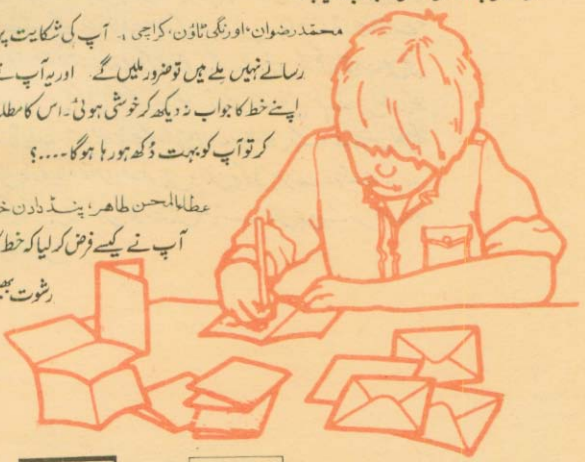 محمّد رضوان، اورنگی ٹاؤن، کراچی ۔ آپ کی شکایت پر
رسالے نہیں ملے ہیں تو ضرور ملیں گے اور یہ آپ نے
اپنے خط کا جواب نہ دیکھ کر خوشی ہوئی۔ اس کا مطلب
کر تو آپ کو بہت دُکھ ہو رہا ہوگا ....؟
عطاالمحسن طاھر، پنڈ دادن خ
آپ نے کیسے فرض کر لیا کہ خط
رشوت بھی